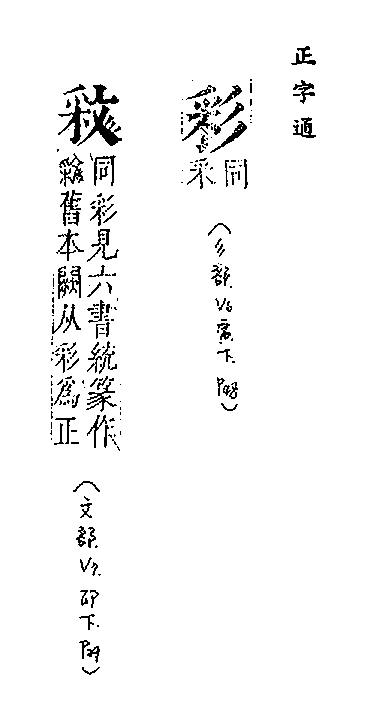 正字通
彩
同
采
(彡部.V6.寅下.P48)
同彩見六書統篆作
舊本闕从彩爲正
(文部.V7.卯下.